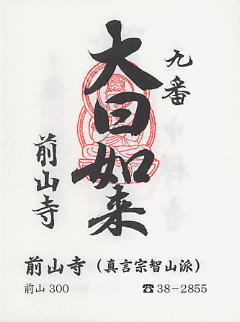 九番
大日如来
前山寺
前山寺（真言宗智山派）
前山 300 ☎38−2855